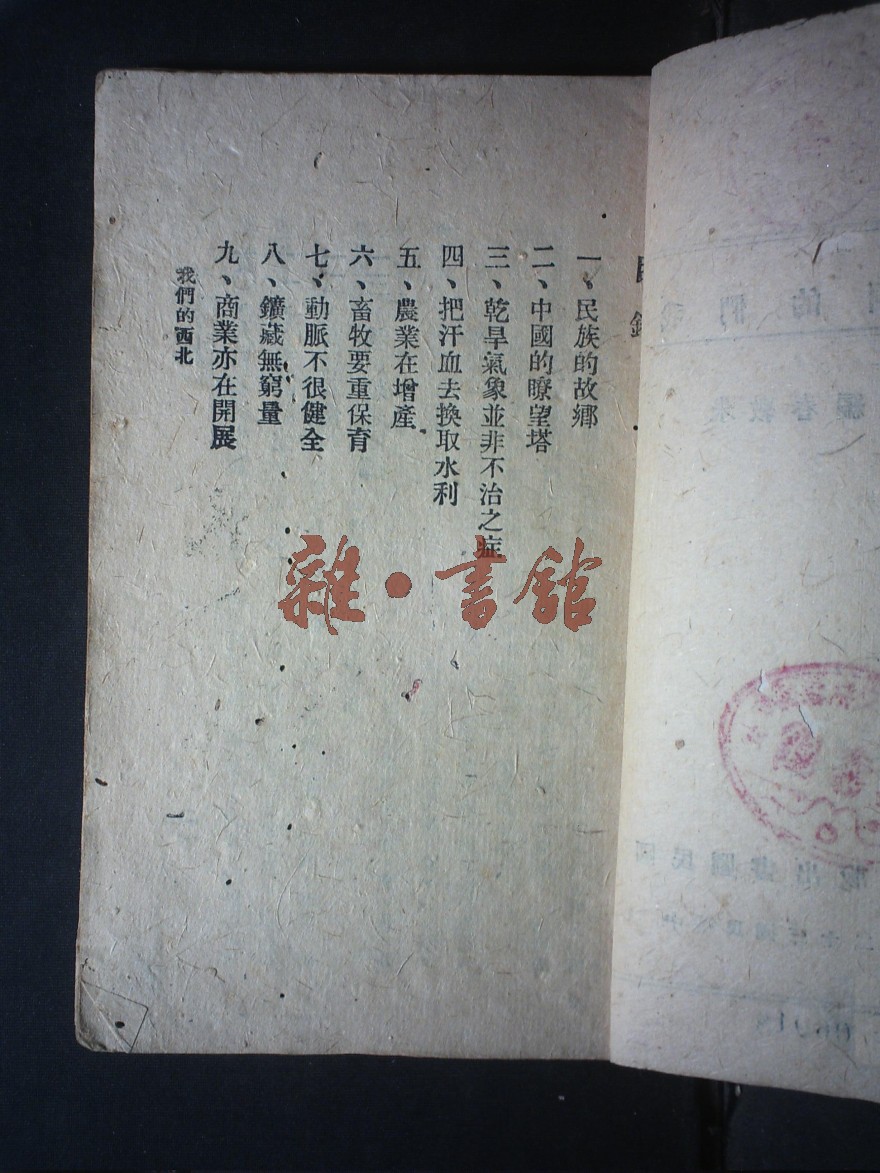 目錄
一、民族的故鄉
二、中國的瞭望塔
三、乾旱氣象並非不治之症
四、把汗血去換取水利
五、農業在增產
六、畜牧要重保育
七、動脈不很健全
八、鑛藏無窮量
九、商業亦在開展
我們的西北
一
雜·書館